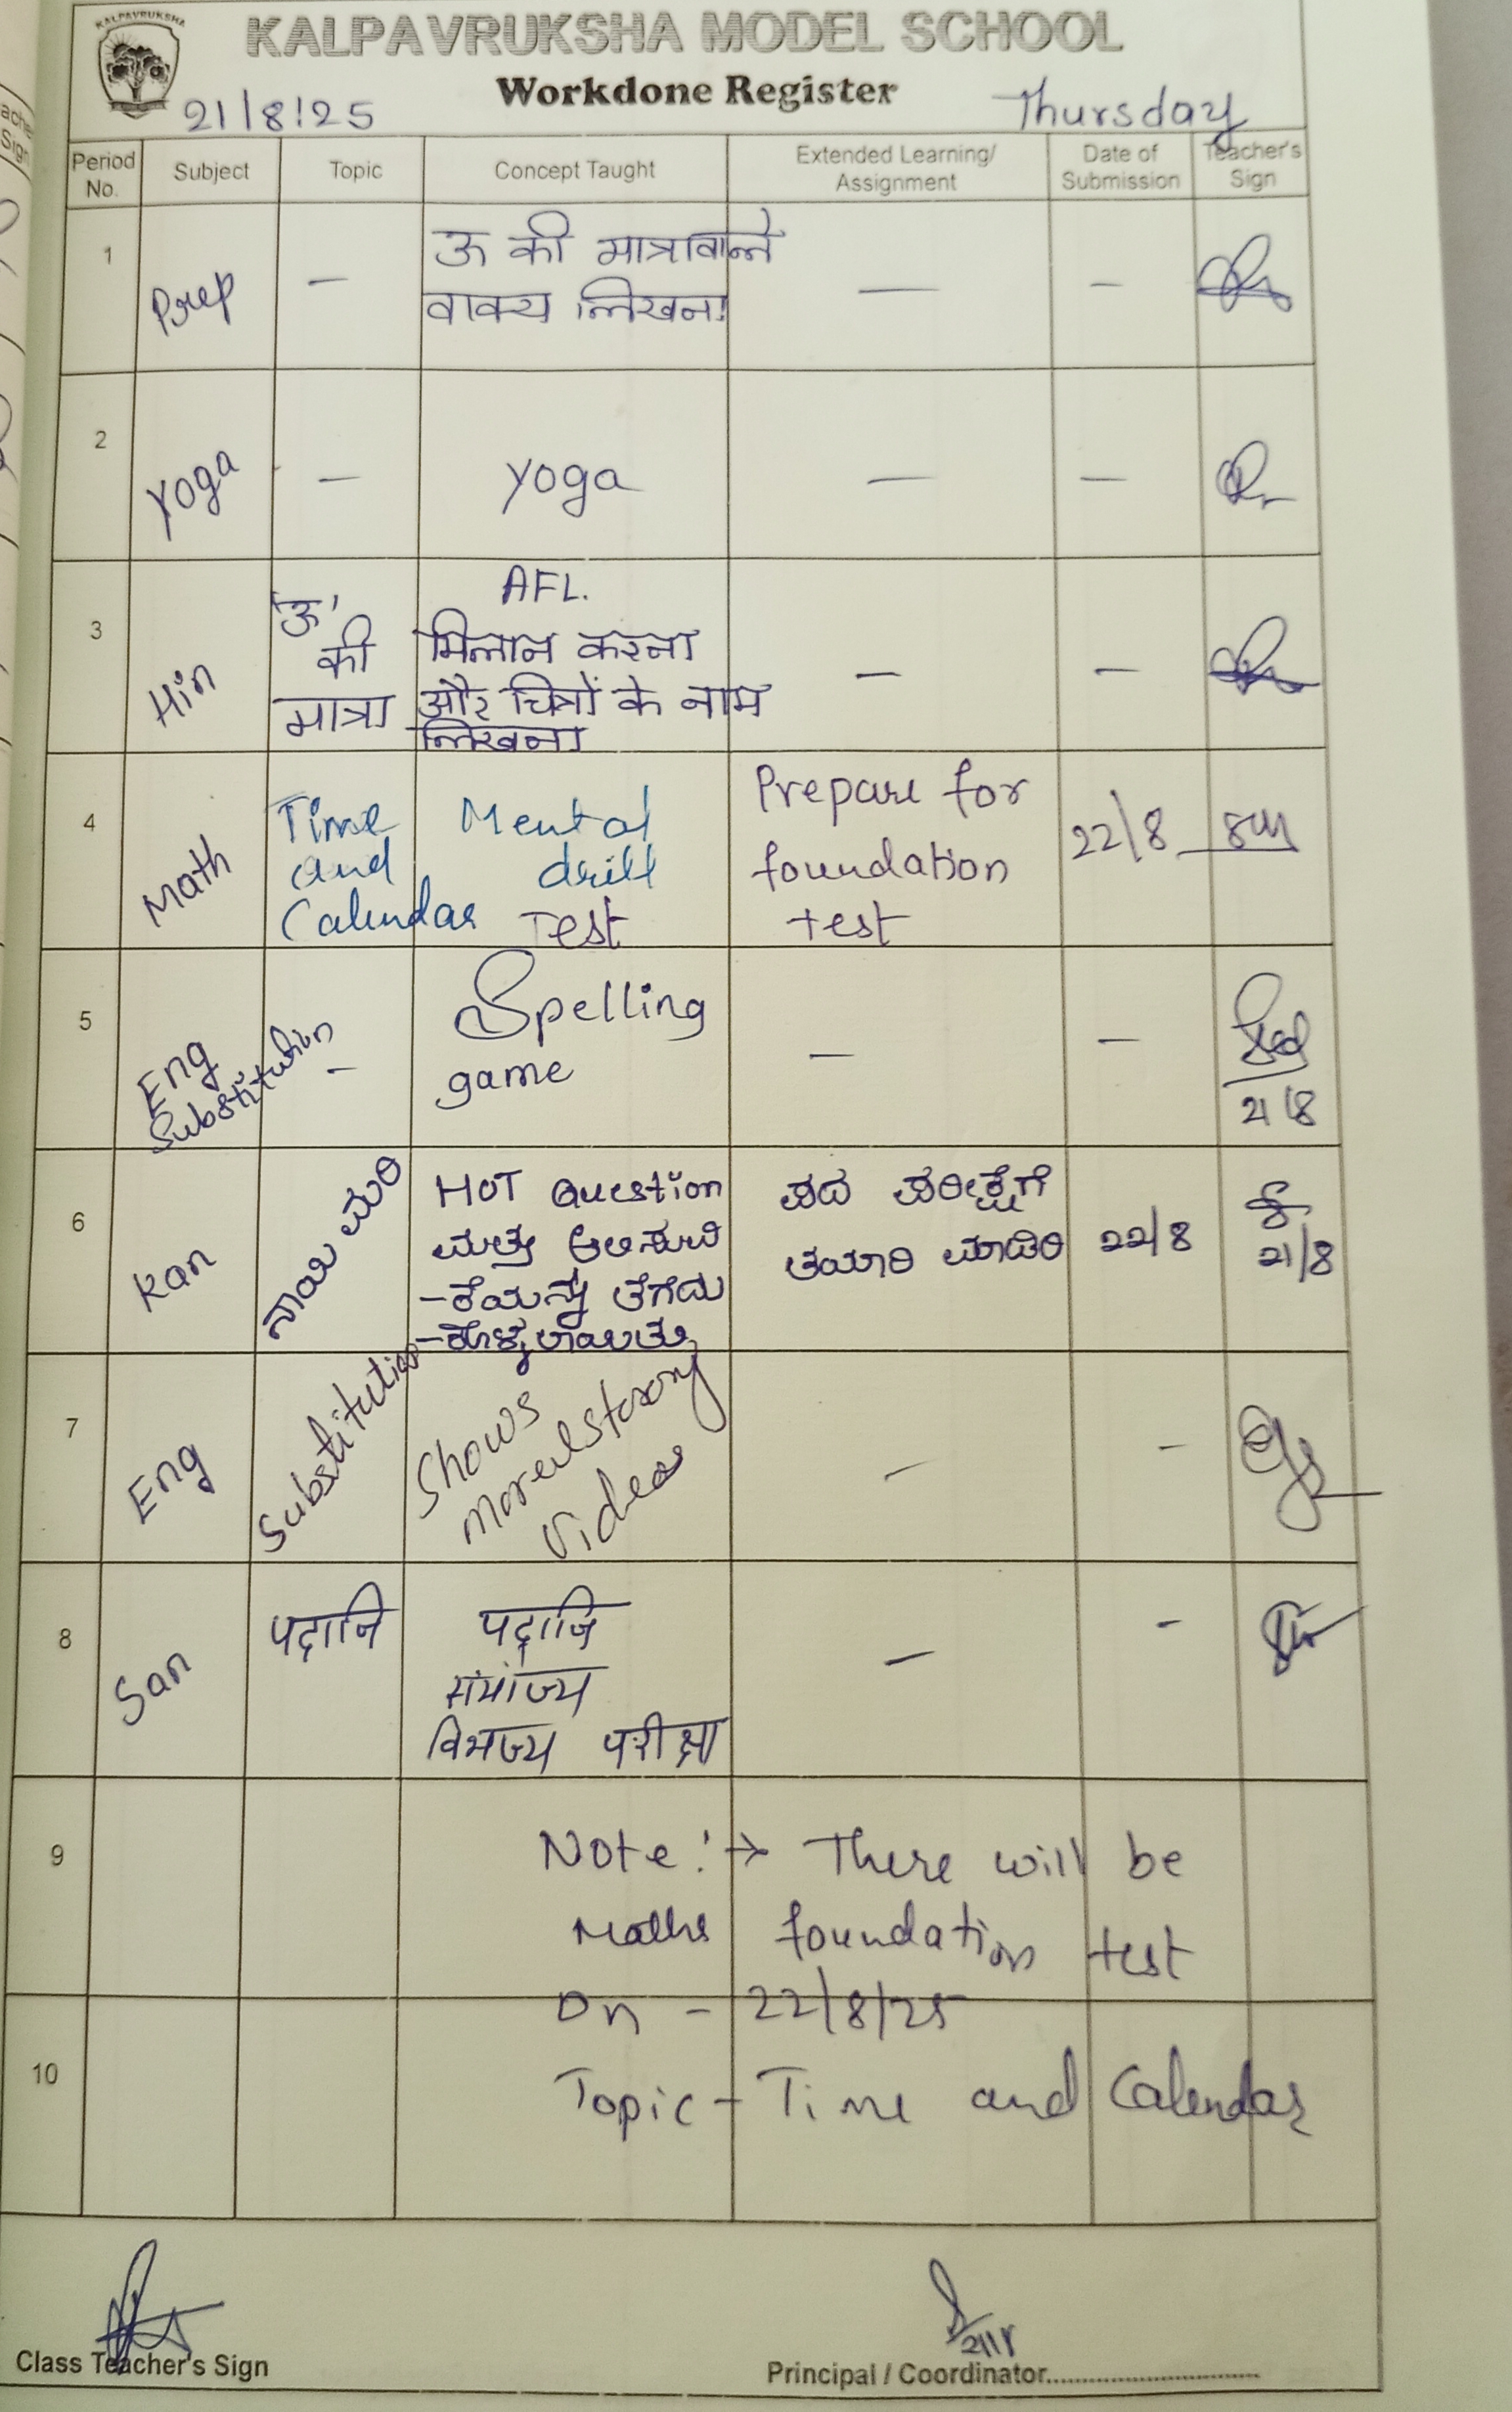 KALPAVRUKSHA
KALPAVRUKSHA MODEL SCHOOL
Workdone Register
21/8/25 Thursday
Period No. Subject Topic Concept Taught Extended Learning/ Assignment Date of Submission Teacher's Sign
1 Prep - ऊ की मात्रावाले
वाक्य लिखना - -
2 Yoga - Yoga - -
3 Hin 'ऊ' की मात्रा AFL.
मिलान करना
और चित्रों के नाम
लिखना - -
4 Math Time and Calendar Mental drill Test Prepare for foundation test 22/8
5 Eng Substitution - Spelling
game - - 21/8
6 Kan ನಾಯಿ ಮರಿ HOT Question
ಮತ್ತು
ಪದ ಪರೀಕ್ಷೆಗೆ
ತಯಾರಿ ಮಾಡಿರಿ 22/8 21/8
7 Eng Substitution Shows
moral story
Videos - -
8 San पदानि पदानि
विभज्य परीक्षा - -
9 Note:→ There will be
Maths foundation test
on - 22/8/25
10 Topic - Time and Calendar
Class Teacher's Sign
Principal / Coordinator